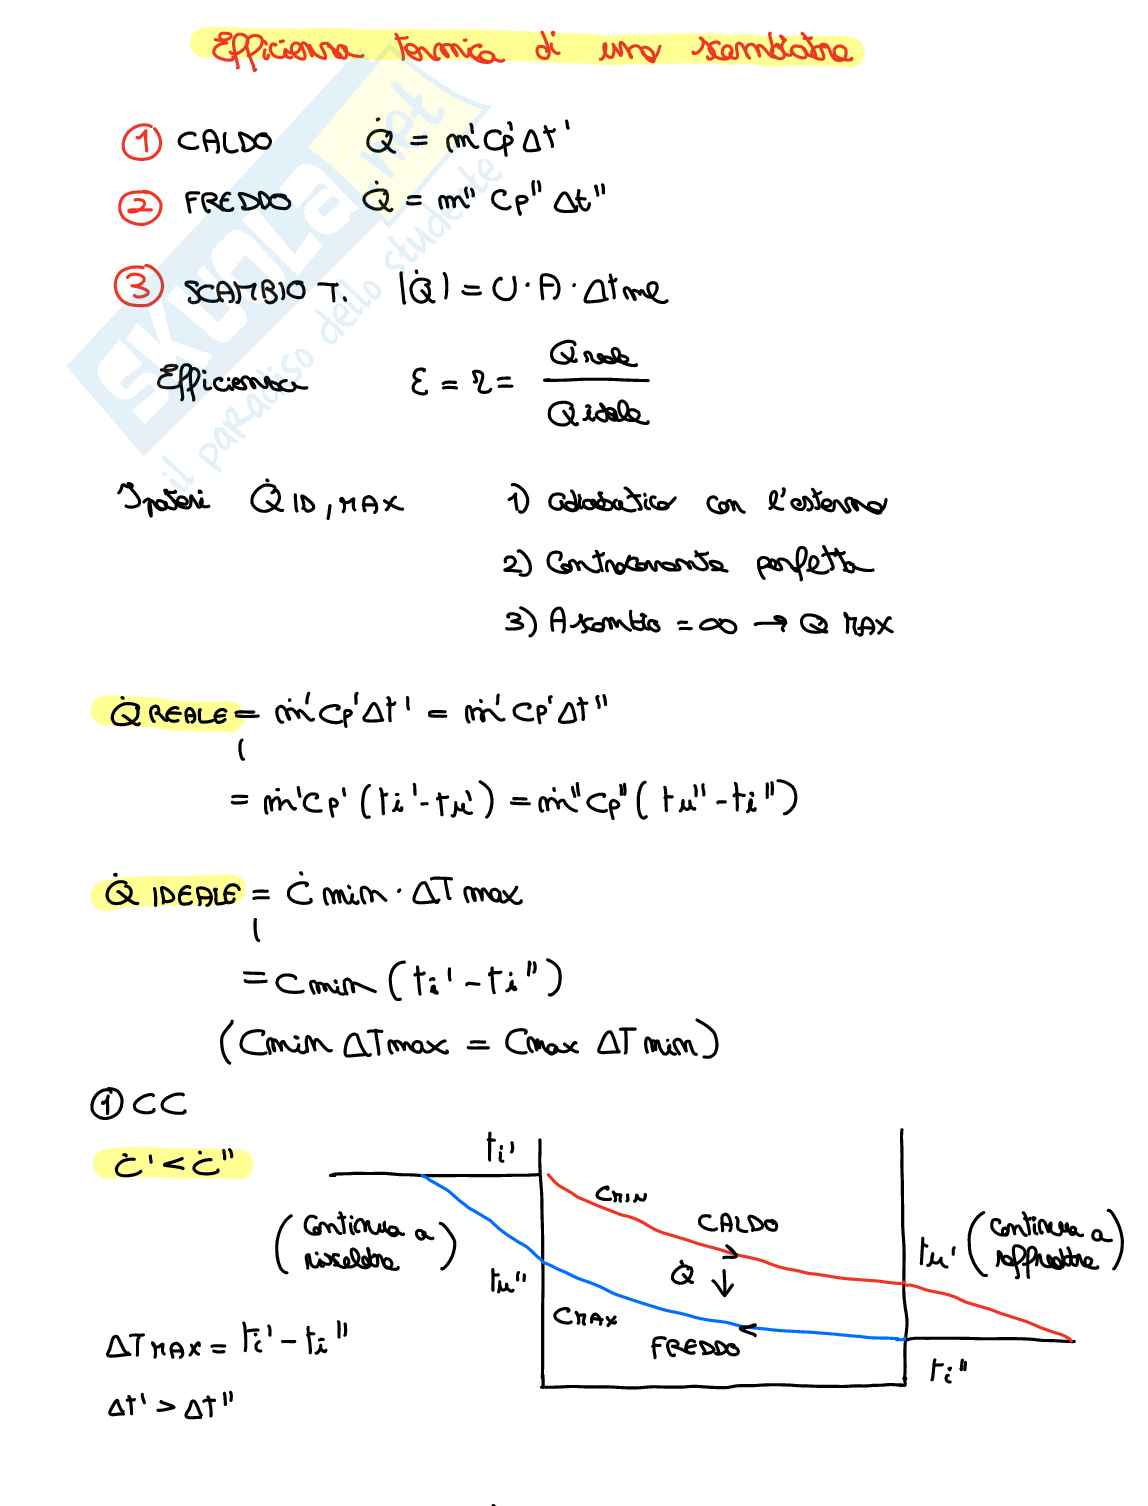 Efficienza termica di uno scambiatore
① CALDO Q̇ = ṁ' Cp' Δt'
② FREDDO Q̇ = m'' Cp'' Δt''
③ SCAMBIO T. |Q̇| = U · A · Δt ml
Efficienza ε = η = Q reale / Q ideale
Ipotesi Q̇ ID, MAX 1) adiabatico con l'esterno
2) Controcorrente perfetta
3) A scambio = ∞ → Q MAX
Q̇ REALE = ṁ' Cp' Δt' = ṁ' Cp' Δt''
= ṁ' Cp' (ti' - tu') = ṁ'' Cp'' (tu'' - ti'')
Q̇ IDEALE = Ċ min · ΔT max
= C min (ti' - ti'')
(Cmin ΔTmax = Cmax ΔTmin)
① CC
Ċ' < Ċ''
ti'
CMIN
CALDO
(Continua a
riscaldare)
tu''
Q̇ ↓
tu' (Continua a
raffreddare)
CMAX
FREDDO
ti''
ΔT MAX = ti' - ti''
Δt' > Δt''
SKUOLA.net
il paradiso dello studente